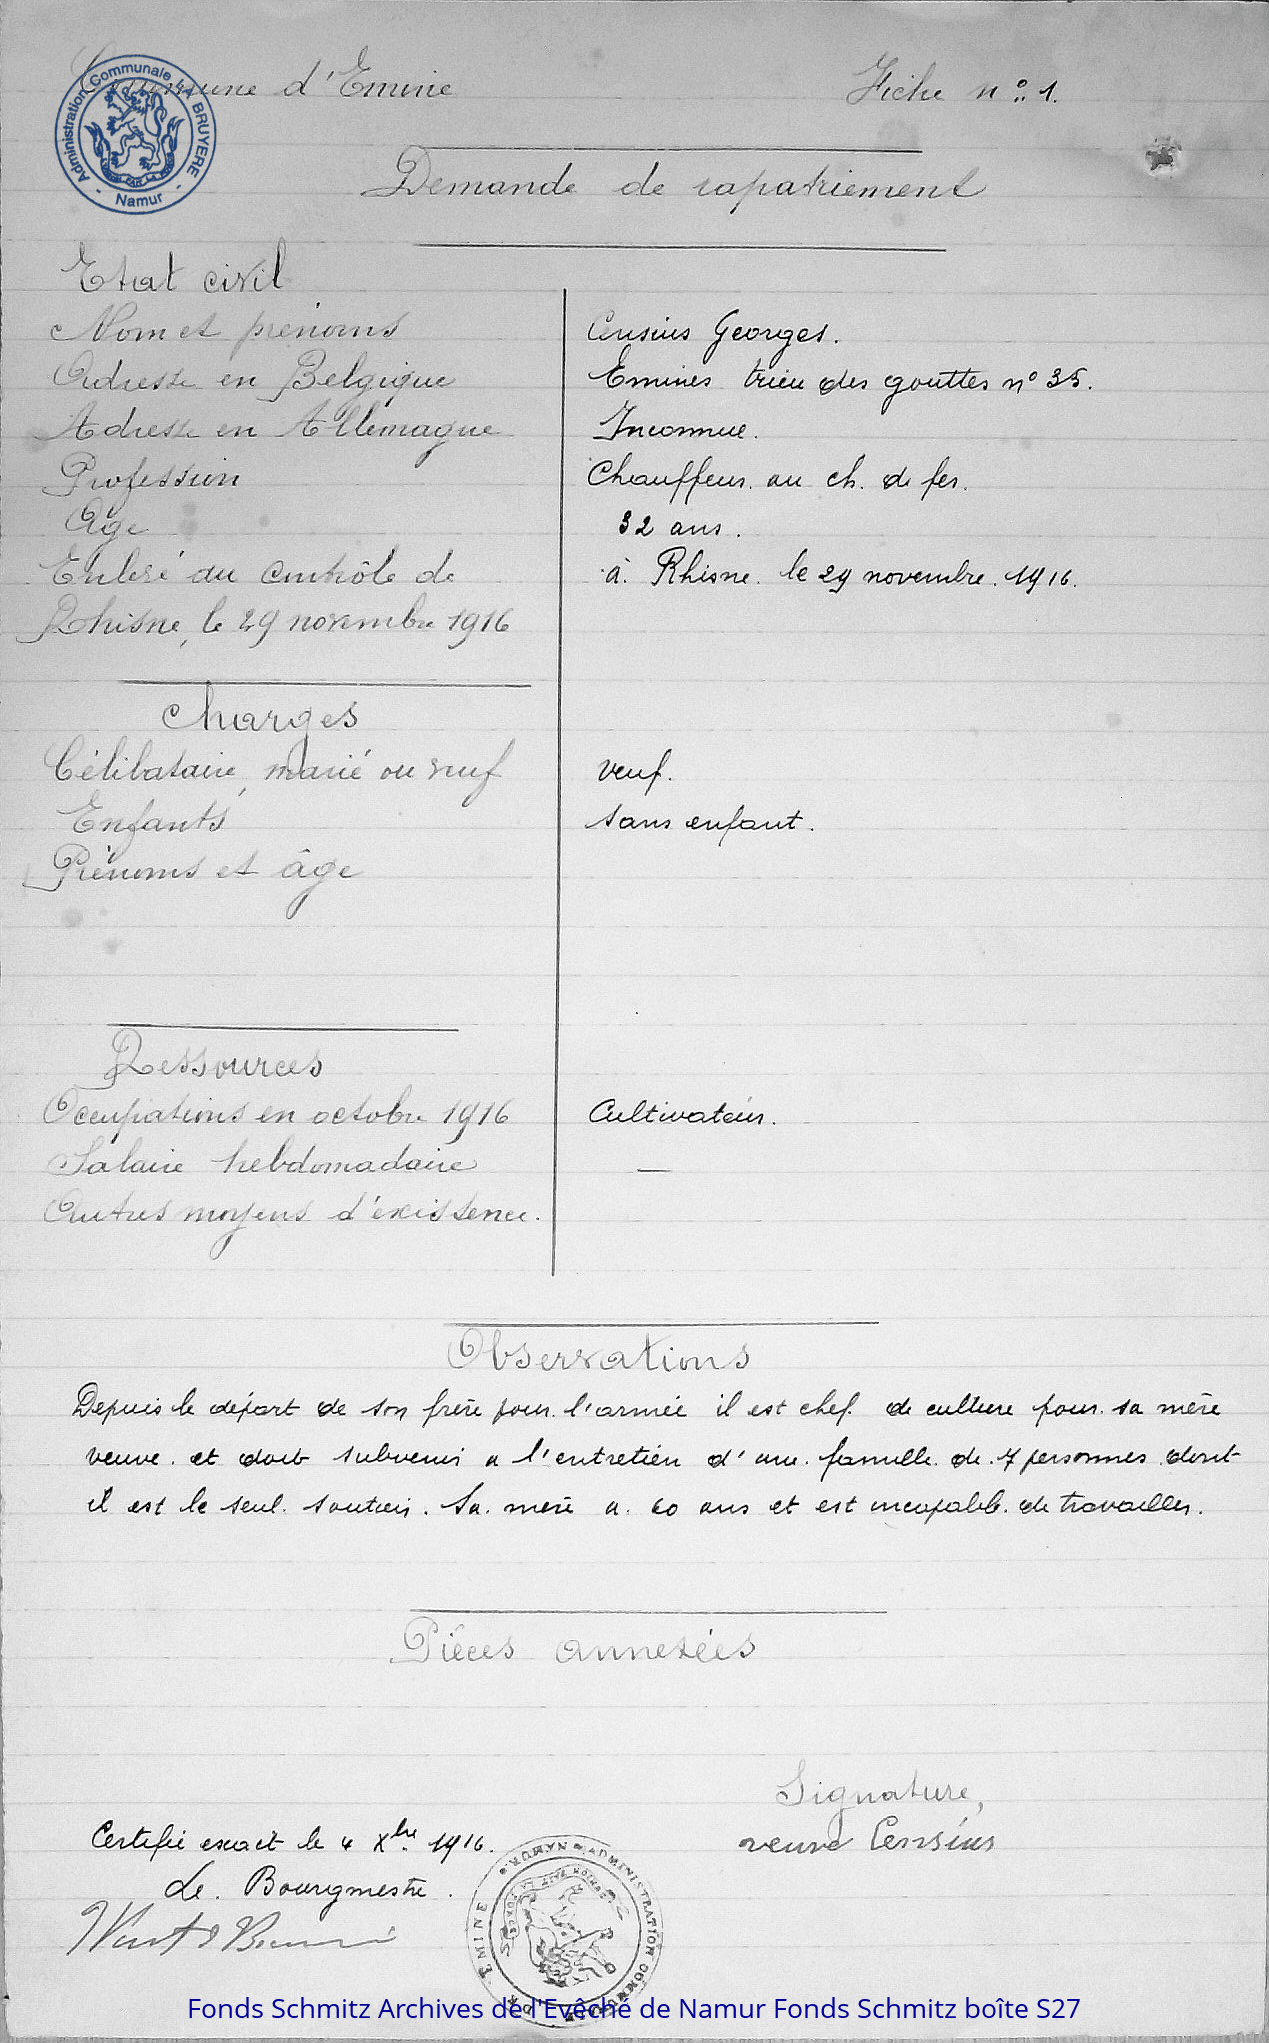 Commune d'Emine
Fiche n° 1.
Administration Communale LA BRUYERE - Namur -
Demande de rapatriement
Etat civil
Nom et prénoms Censius Georges.
Adresse en Belgique Emines trieu des gouttes n° 35.
Adresse en Allemagne Inconnue.
Profession Chauffeur au ch. de fer.
Age 32 ans.
Enlevé au contrôle de à Rhisne le 29 novembre 1916.
Rhisne, le 29 novembre 1916
Charges
Célibataire, marié ou veuf veuf.
Enfants sans enfant.
Prénoms et âge
Ressources
Occupations en octobre 1916 Cultivateur.
Salaire hebdomadaire —
Autres moyens d'existence.
Observations
Depuis le départ de son frère pour l'armée il est chef de culture pour sa mère
veuve et doit subvenir a l'entretien d'une famille de 7 personnes dont
il est le seul soutien. Sa mère a 60 ans et est incapable de travailler.
Pièces annexées
Signature,
veuve Censius
Certifié exact le 4 Xbre 1916.
Le Bourgmestre.
ADMINISTRATION COMMUNALE D' EMINE * NAMUR *
Fonds Schmitz Archives de l'Evêché de Namur Fonds Schmitz boîte S27